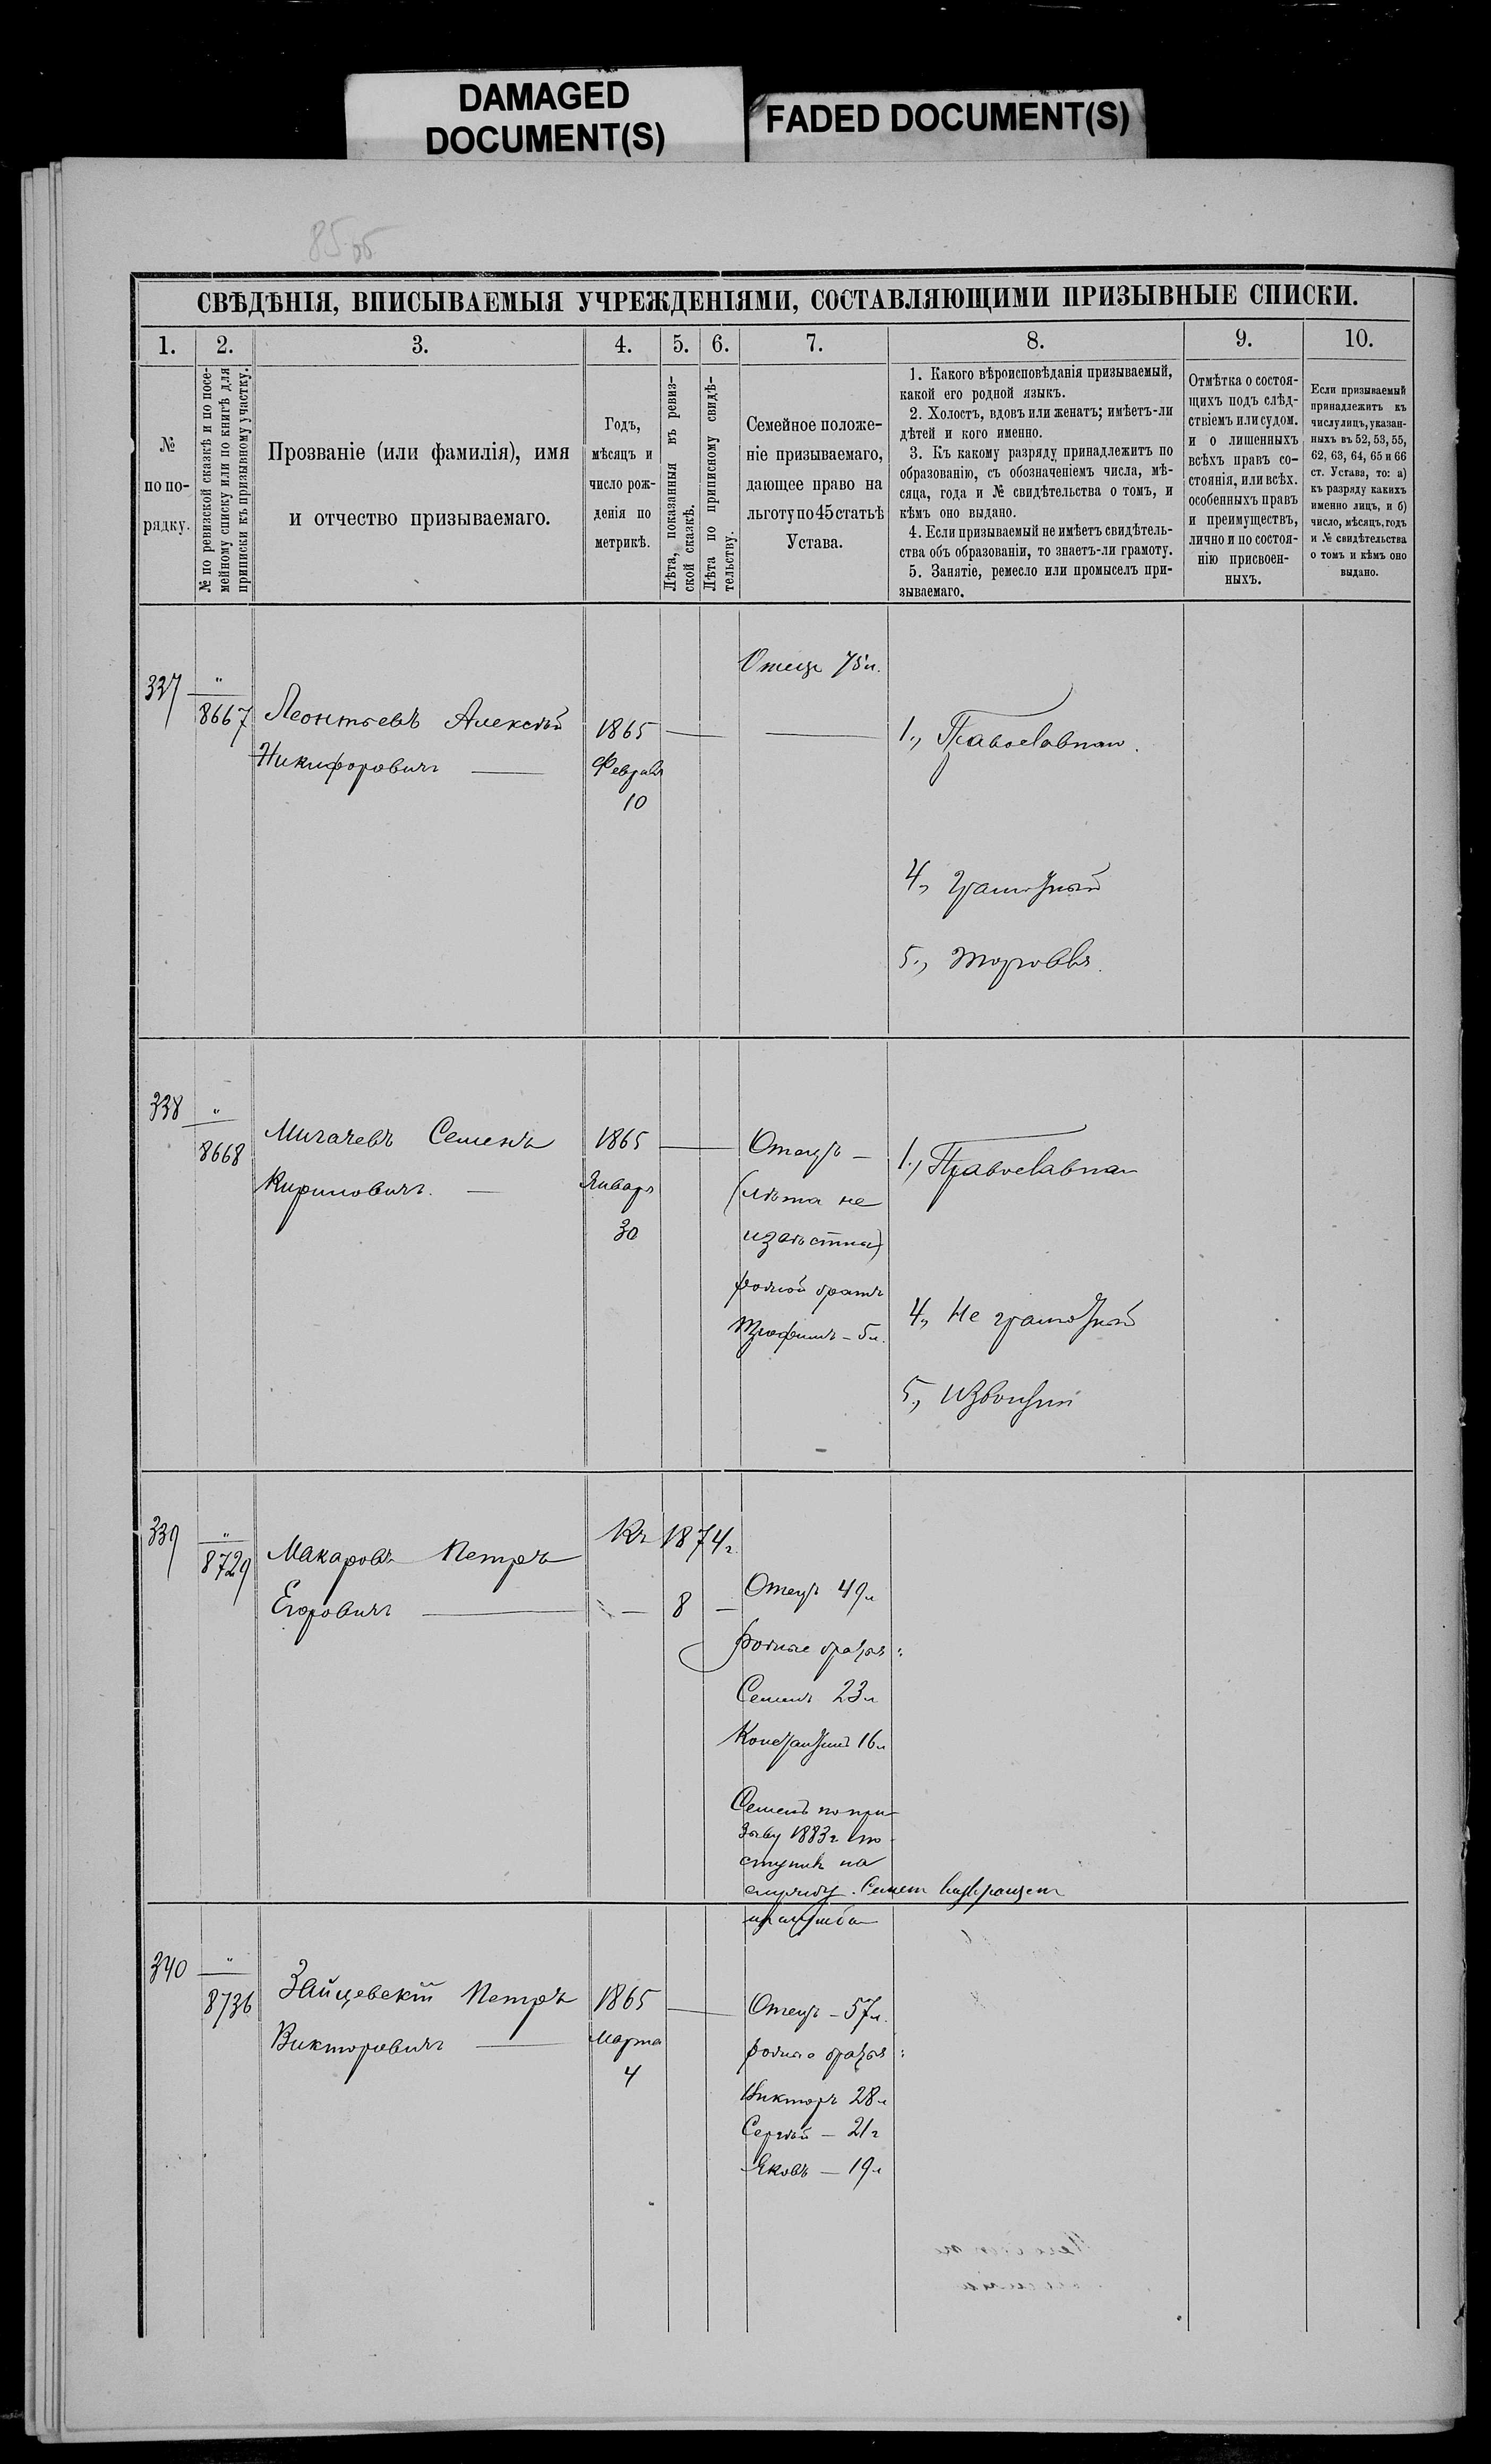 DAMAGED
DOCUMENT(S)
FADED DOCUMENT(S)
СВѢДѢНІЯ, ВПИСЫВАЕМЫЯ УЧРЕЖДЕНІЯМИ, СОСТАВЛЯЮЩИМИ ПРИЗЫВНЫЕ СПИСКИ.
1.
2.
3.
4.
5.
6.
7.
8.
9.
10.
№
по по-
рядку.
№ по ревизской сказкѣ и по посе-
мейному списку или по книгѣ для
приписки къ призывному участку.
Прозваніе (или фамилія), имя
и отчество призываемаго.
Годъ,
мѣсяцъ и
число рож-
денія по
метрикѣ.
Лѣта, показанныя въ ревиз-
ской сказкѣ.
Лѣта по приписному свидѣ-
тельству.
Семейное положе-
ніе призываемаго,
дающее право на
льготу по 45 статьѣ
Устава.
1. Какого вѣроисповѣданія призываемый,
какой его родной языкъ.
2. Холостъ, вдовъ или женатъ; имѣетъ-ли
дѣтей и кого именно.
3. Къ какому разряду принадлежитъ по
образованію, съ обозначеніемъ числа, мѣ-
сяца, года и № свидѣтельства о томъ, и
кѣмъ оно выдано.
4. Если призываемый не имѣетъ свидѣтель-
ства объ образованіи, то знаетъ-ли грамоту.
5. Занятіе, ремесло или промыселъ при-
зываемаго.
Отмѣтка о состоя-
щихъ подъ слѣд-
ствіемъ или судом.
и о лишенныхъ
всѣхъ правъ со-
стоянія, или всѣх.
особенныхъ правъ
и преимуществъ,
лично и по состоя-
нію присвоен-
ныхъ.
Если призываемый
принадлежитъ къ
числу лицъ, указан-
ныхъ въ 52, 53, 55,
62, 63, 64, 65 и 66
ст. Устава, то: а)
къ разряду какихъ
именно лицъ, и б)
число, мѣсяцъ, годъ
и № свидѣтельства
о томъ и кѣмъ оно
выдано.
337
"
8667
Леонтьевъ Алексѣй
Никифоровичъ —
1865
Февраля
10
Отецъ 75 л.
1., Православнаго.
4., Грамотный
5., Торговля.
338
"
8668
Мигачевъ Семенъ
Кириловичъ. —
1865
Января
30
Отецъ —
(лѣта не
извѣстны)
родной братъ
Трофимъ — 5 л.
1., Православнаго
4., Не грамотный
5., Извощикъ
339
"
8729
Макаровъ Петръ
Егоровичъ —
Къ 1874 г.
— 8 —
Отецъ 49 л
родные братья:
Семенъ 23 л
Константинъ 16 л
Семенъ по при-
зыву 1883 г. по-
ступилъ на
службу. Семенъ
340
"
8736
Зайцевскій Петръ
Викторовичъ —
1865
Марта
4
Отецъ — 57 л.
родные братья:
Викторъ 28 л
Сергѣй — 21 г
Яковъ — 19 л